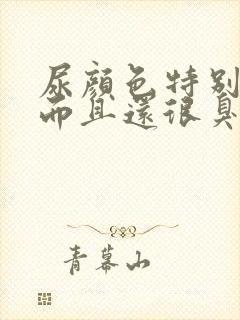 尿顏色特別
而且還很臭
青幕山